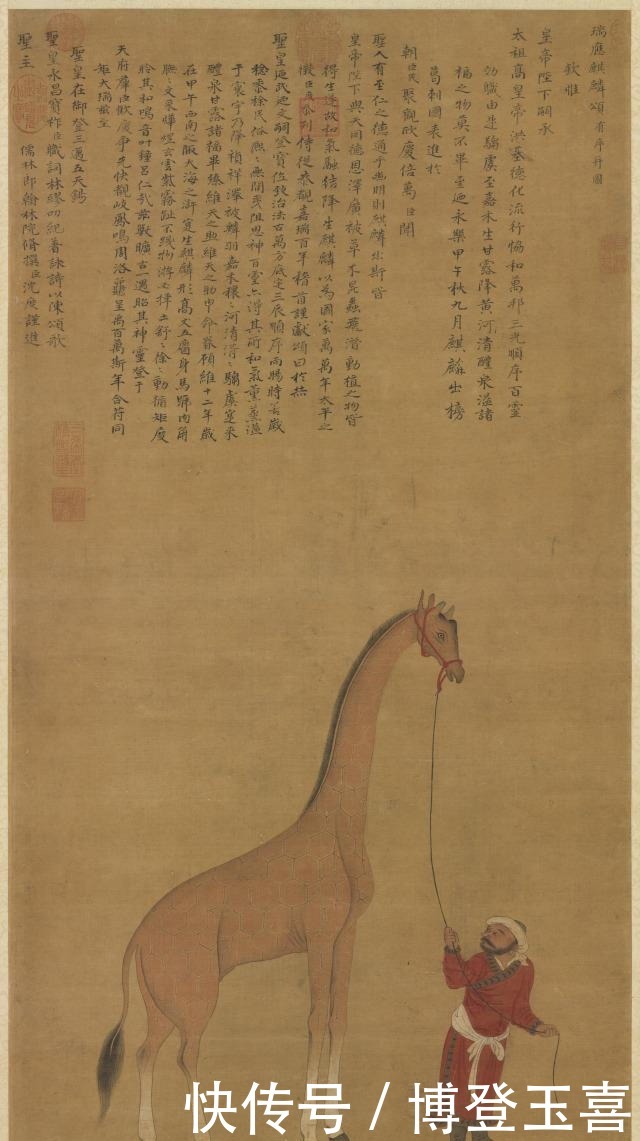 瑞應麒麟頌 有序并圖
欽惟
皇帝陛下嗣承
太祖高皇帝洪基德化流行恊和萬邦三光順序百靈
効職由是騶虞至嘉禾生甘露降黃河清醴泉溢諸
福之物莫不畢至迺永樂甲午秋九月麒麟出榜
葛剌國表進於
朝臣民聚觀欣慶倍萬臣聞
聖人有至仁之德通乎幽明則麒麟出斯皆
皇帝陛下與天同德恩澤廣被草木昆蟲飛潛動植之物皆
得生遂故和氣融結降生麒麟以為國家萬萬年太平之
徵臣度忝列侍從恭觀嘉瑞百年稽首謹獻頌曰於赫
聖皇迺武迺文嗣登寶位致治法古萬方底定三辰順序雨暘時若歲
稔黍稌民俗熙〻無間阻思神百靈亦得其所和氣薰蒸溢
于寰宇乃降禎祥澤被麟羽嘉禾穰〻河清滑〻騶虞寔來
醴泉甘露諸福畢臻維天之與維天之申命眷顧維十二年歲
在甲午西南之陬大海之滸寔生麒麟形高丈五麕身馬蹄肉角
膴〻文采燁煜玄雲紫霧趾不踐物游必擇土舒〻徐〻動循矩度
聆其和鳴音叶鐘呂仁哉茲獸曠古遇昭其神靈登于
天府群臣歡慶爭先快覩岐鳳鳴周洛龜呈禹百萬斯年合符同
矩大瑞茲至
聖皇在御登三邁五天錫
聖皇永昌寶祚臣職詞林繆叨紀著詠詩以陳頌歌
聖主
儒林郎翰林院脩撰臣沈度謹進
快传号 / 博登玉喜